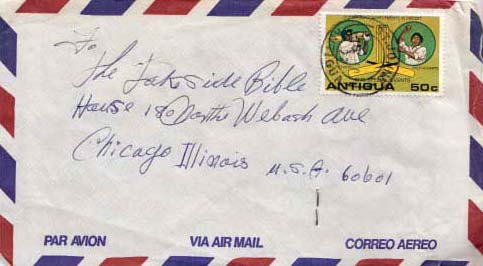 To
The Lakeside Bible
House 180 North Webash Ave
Chicago Illinois U.S.A. 60601
ANTIGUA 50c
PAR AVION VIA AIR MAIL CORREO AEREO